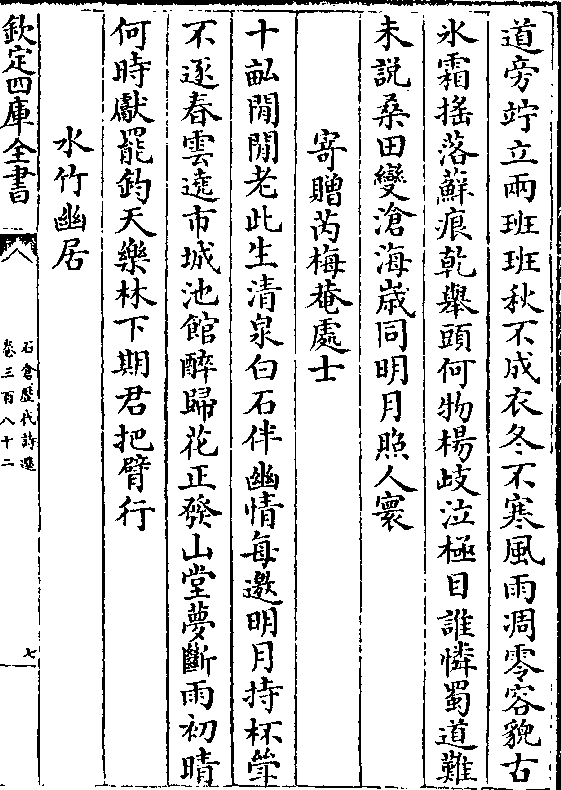 道旁竚立兩班班秋不成衣冬不寒風雨凋零容貌古
氷霜搖落蘚痕乾舉頭何物楊岐泣極目誰憐蜀道難
未説桑田變滄海歳同明月照人寰
寄贈芮梅菴處士
十畝閒閒老此生清泉白石伴幽情每邀明月持杯㪺
不逐春雲遶市城池館醉歸花正發山堂夢斷雨初晴
何時獻罷鈞天樂林下期君把臂行
水竹幽居
欽定四庫全書
石倉歴代詩選
卷三百八十二
七